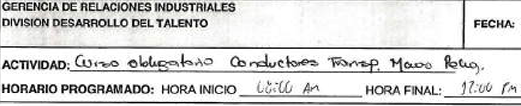 GERENCIA DE RELACIONES INDUSTRIALES
DIVISION DESARROLLO DEL TALENTO
FECHA:
ACTIVIDAD: Curso obligatorio Conductores Transp.
HORARIO PROGRAMADO: HORA INICIO Am HORA FINAL: 12:00 Pm